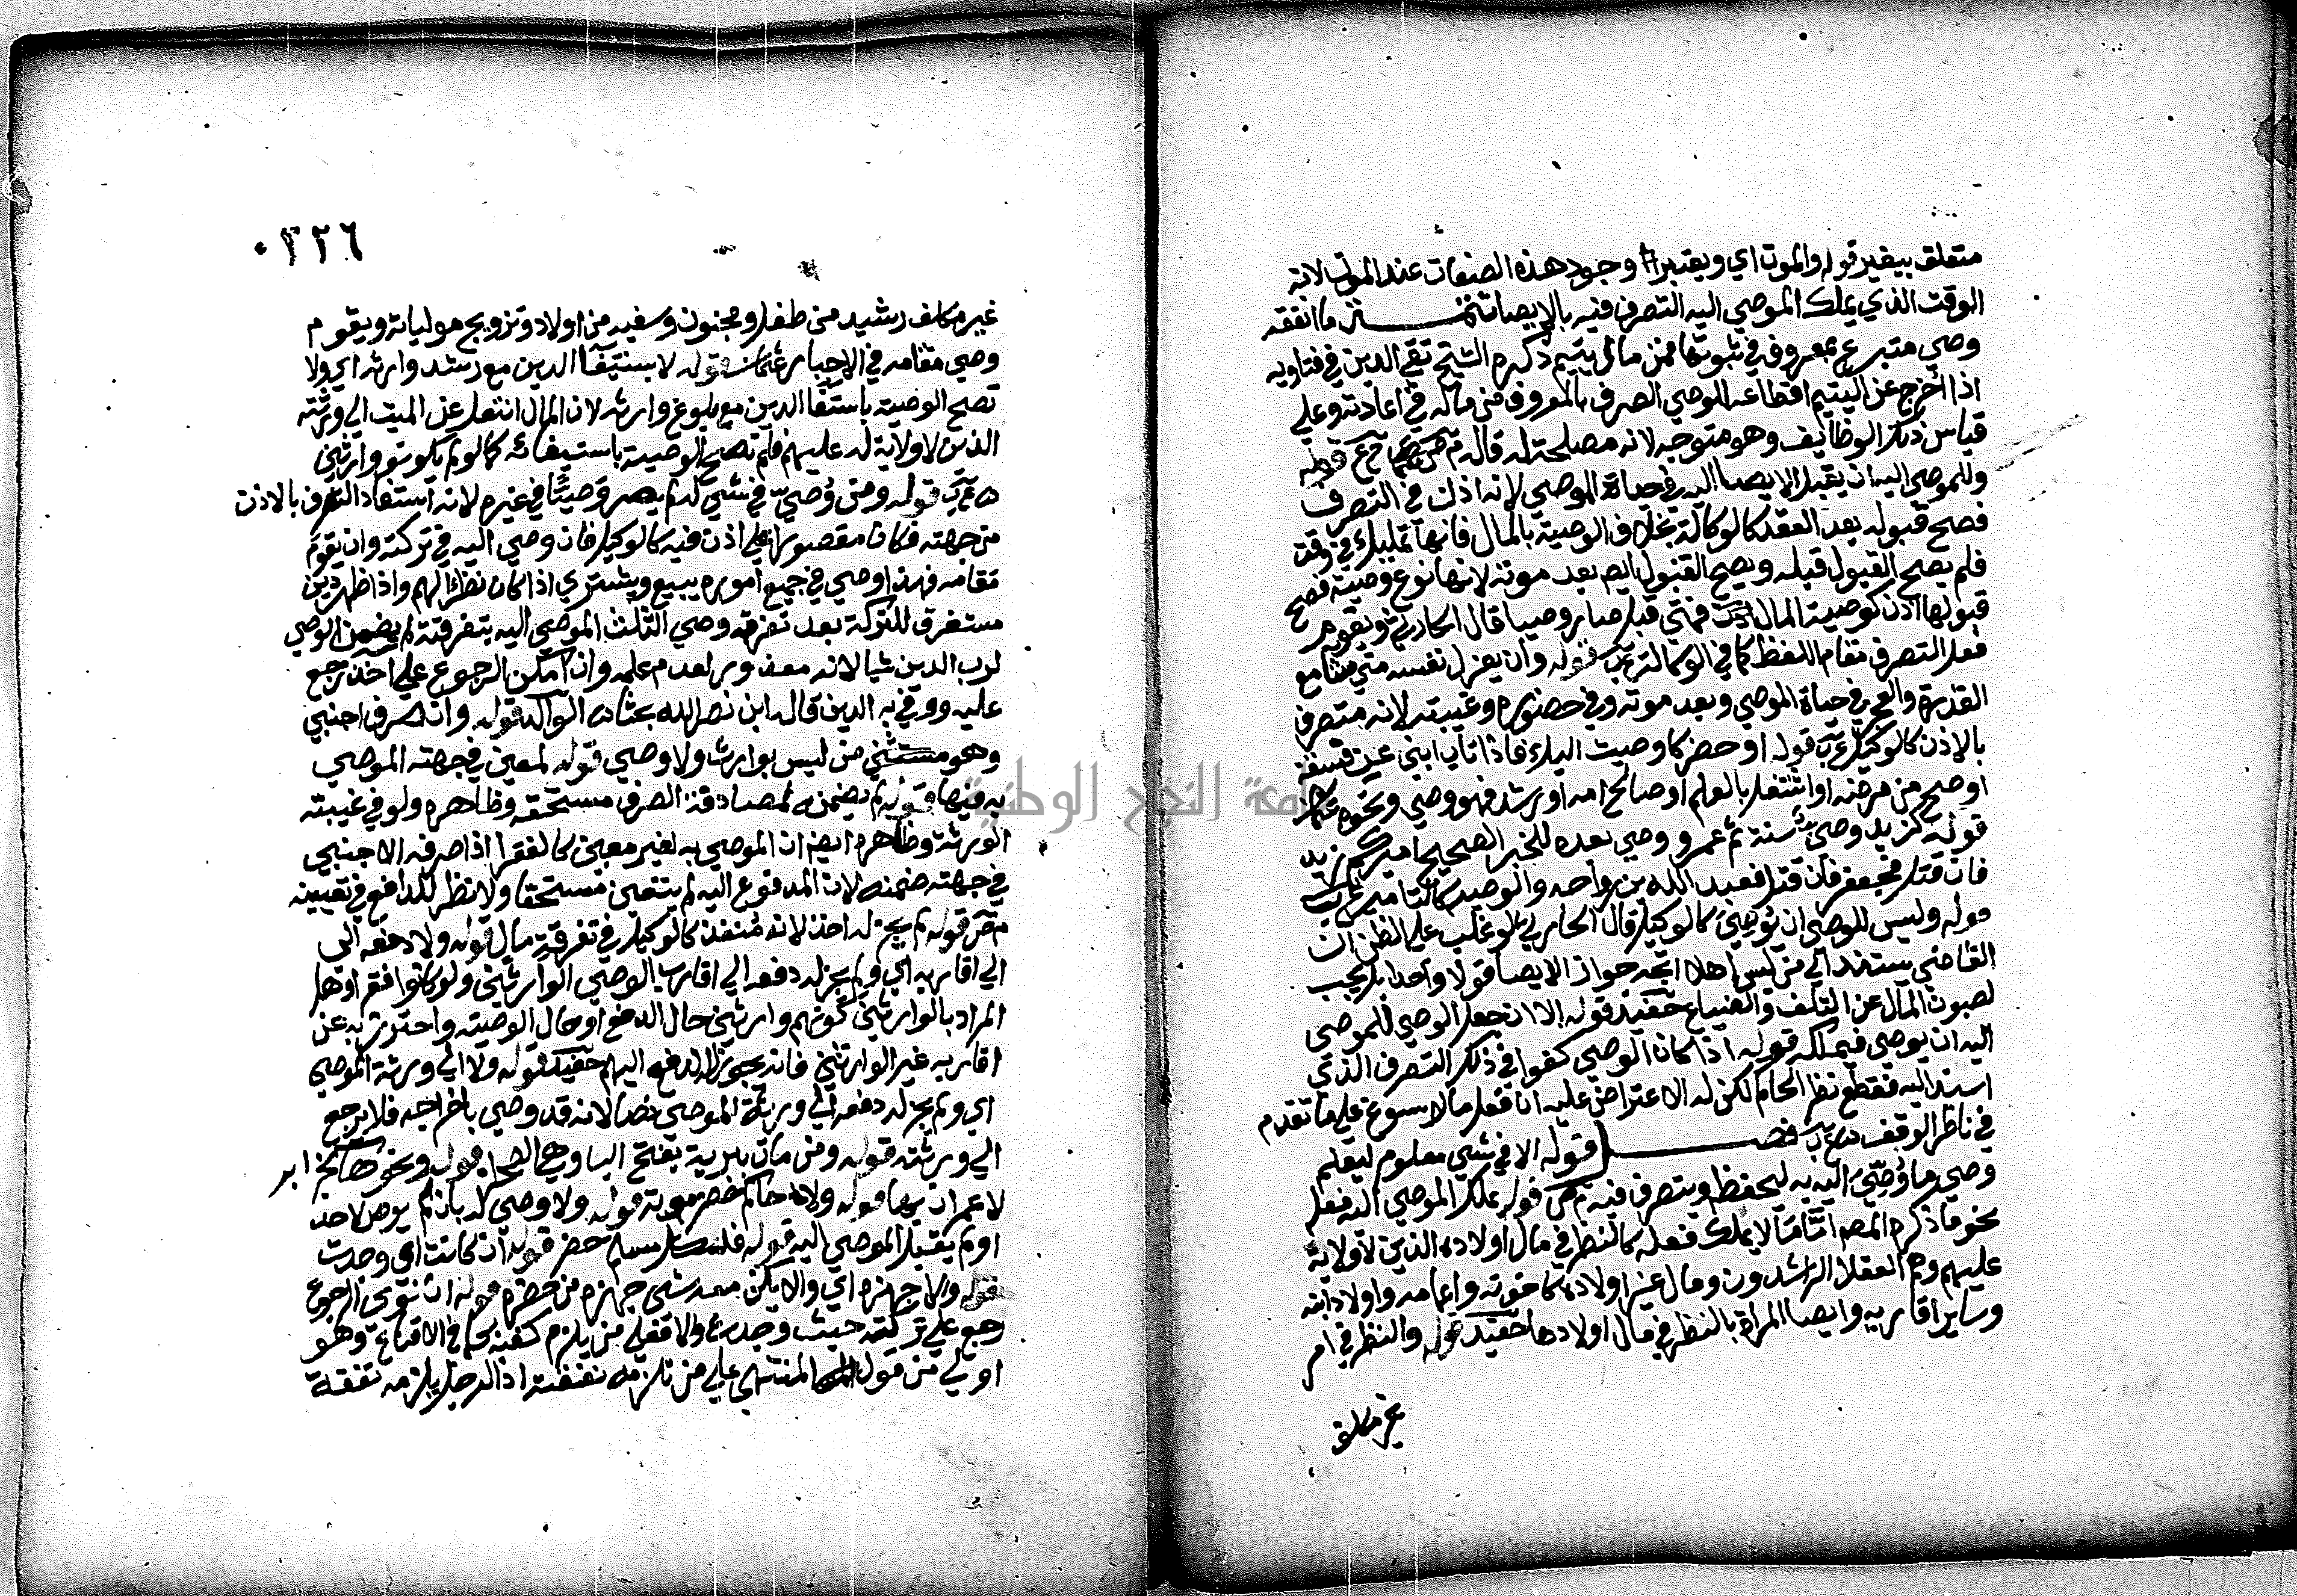 متعلق بيغير قوله والموت اي ويعتبر وجود هذه الصفات عند الموت لانه
الوقت الذي يملك الموصي اليه التصرف فيه بالايصا تتمة ما انفقه
وصي متبرع بمعروف في ثبوتها فمن مال يتيم ذكره الشيخ تقي الدين في فتاويه
اذا اخرج عن اليتيم اقطاعه للوصي الصرف بالمعروف من ماله في اعادته وعلى
قياس ذلك الوظايف وهو متوجه لانه مصلحة له قاله قوله
وللموصى اليه ان يقبل الايصا اليه في حياة الموصي لانه اذن في التصرف
فصح قبوله بعد العقد كالوكالة بخلاف الوصية بالمال فانها تمليك في وقت
فلم يصح القبول قبله ويصح القبول ايض بعد موته لانها نوع وصية فصح
قبولها اذن كوصية المال فمتى قبل صار وصيا قال الحارثي ويقوم
فعل التصرف مقام اللفظ كما في الوكالة قوله وان يعزل نفسه متى شا مع
القدرة والعجز في حياة الموصي وبعد موته وفي حضوره وغيبته لانه متصرف
بالاذن كالوكيل قوله او حضر كاوصيت اليك فاذا تاب ابني عن فسقه
او صح من مرضه او اشتغل بالعلم او صالح امه او رشد فهو وصي ونحوه
قوله كزيد وصي سنة ثم عمرو وصي بعده للخبر الصحيح اميركم زيد
فان قتل فجعفر فان قتل فعبد الله بن رواحه والوصية كالتامير
قوله وليس للوصي ان يوصي كالوكيل قال الحارثي لو غلب على الظن ان
القاضي يستند الى من ليس اهلا اتجه جواز الايصا قولا واحدا بل يجب
لصون المال عن التلف والضياع حفيد قوله الا ان جعل الوصي للموصى
اليه ان يوصي فيملكه قوله اذا كان الوصي كفوا في ذلك التصرف الذي
اسند اليه فقطع نظر الحاكم لكن له الاعتراض عليه ان فعل ما لا يسوغ على ما تقدم
في ناظر الوقف فصل قوله الا في شي معلوم ليعلم
وصي ما وصي اليه به ليحفظه ويتصرف فيه قوله يملك الموصي اليه فعل
نحو ما ذكره المصـ اما ما لا يملك فعله كالنظر في مال اولاده الذين لا ولاية
عليهم وهم العقلا الراشدون ومال غير اولاده كاخوته واعمامه واولاد ابنه
وساير اقاربه وايصا المراة بالنظر في مال اولادها حفيد قوله والنظر في امر
غير مكلف
٣٢٦
غير مكلف رشيد من طفل ومجنون وسفيه من اولاد وتزويج مولياته ويقوم
وصي مقامه في الاجبار قوله لا بستيفا الدين مع رشد وارثه اي ولا
تصح الوصية باستفا الدين مع بلوغ وارثه لان المال انتقل عن الميت الى ورثته
الذين لا ولاية له عليهم فلم تصح الوصية باستيفائه كما لو لم يكونوا وارثين
قوله ومن وصي في شي لم يصر وصيا في غيره لانه استفاد التصرف بالاذن
من جهته فكان مقصورا على اذن فيه كالوكيل فان وصي اليه في تركته وان يقوم
مقامه فهذا وصي في جميع اموره يبيع ويشتري اذا كان نظرا لهم واذا ظهر دين
مستغرق للتركة بعد تفرقة وصي الثلث الموصى اليه بتفرقته لم يضمن الوصي
لرب الدين شيا لانه معذور بعدم علمه وان امكن الرجوع على اخذ رجع
عليه ووفي به الدين قاله ابن نصر الله بحثا قوله وان صرف اجنبي
وهو من ليس بوارث ولا وصي قوله لمعين في جهته الموصى
به فيها قوله لم يضمنه لمصادفة الصرف مستحقه وظاهره ولو في غيبته
الورثة وظاهره ايض ان الموصى به لغير معين كالفقرا اذا صرفه الاجنبي
في جهته ضمنه لان المدفوع اليه لم يتعين مستحقا ولا نظر للدافع في تعيينه
قوله لم يجز له اخذ لانه منفذ كالوكيل في تفرقة مال قوله ولا دفعه الى
الى اقاربه اي ولم يجز له دفعه الى اقارب الوصي الوارثين ولو كانوا فقراوهل
المراد بالوارثين كونهم وارثين حال الدفع او حال الوصية واحترز به عن
اقاربه غير الوارثين فانه يجوز الدفع اليهم حفيد قوله ولا الى ورثة الموصي
اي ولم يجز له دفعه الى ورثة الموصي نصا لانه قد وصي باخراجه فلا يرجع
الى ورثته قوله ومن مات ببرية بفتح البا وهي الصحرا قوله ونحوها كجزاير
لا عمران بها قوله ولا حاكم حضر موته قوله ولا وصي له بان لم يوص لاحد
او لم يقبل الموصى اليه قوله فلمسلم حضر قوله ان كانت اي وجدت
قوله والا جهزه اي والا يكن معه شي جهزه من حضره قوله ان نوى الرجوع
رجع على تركته حيث وجدت والا فعلى من يلزم كفنه كما في الاقناع وهو
اولى من قول المنتهى على من تلزمه نفقته اذ الرجل يلزمه نفقة